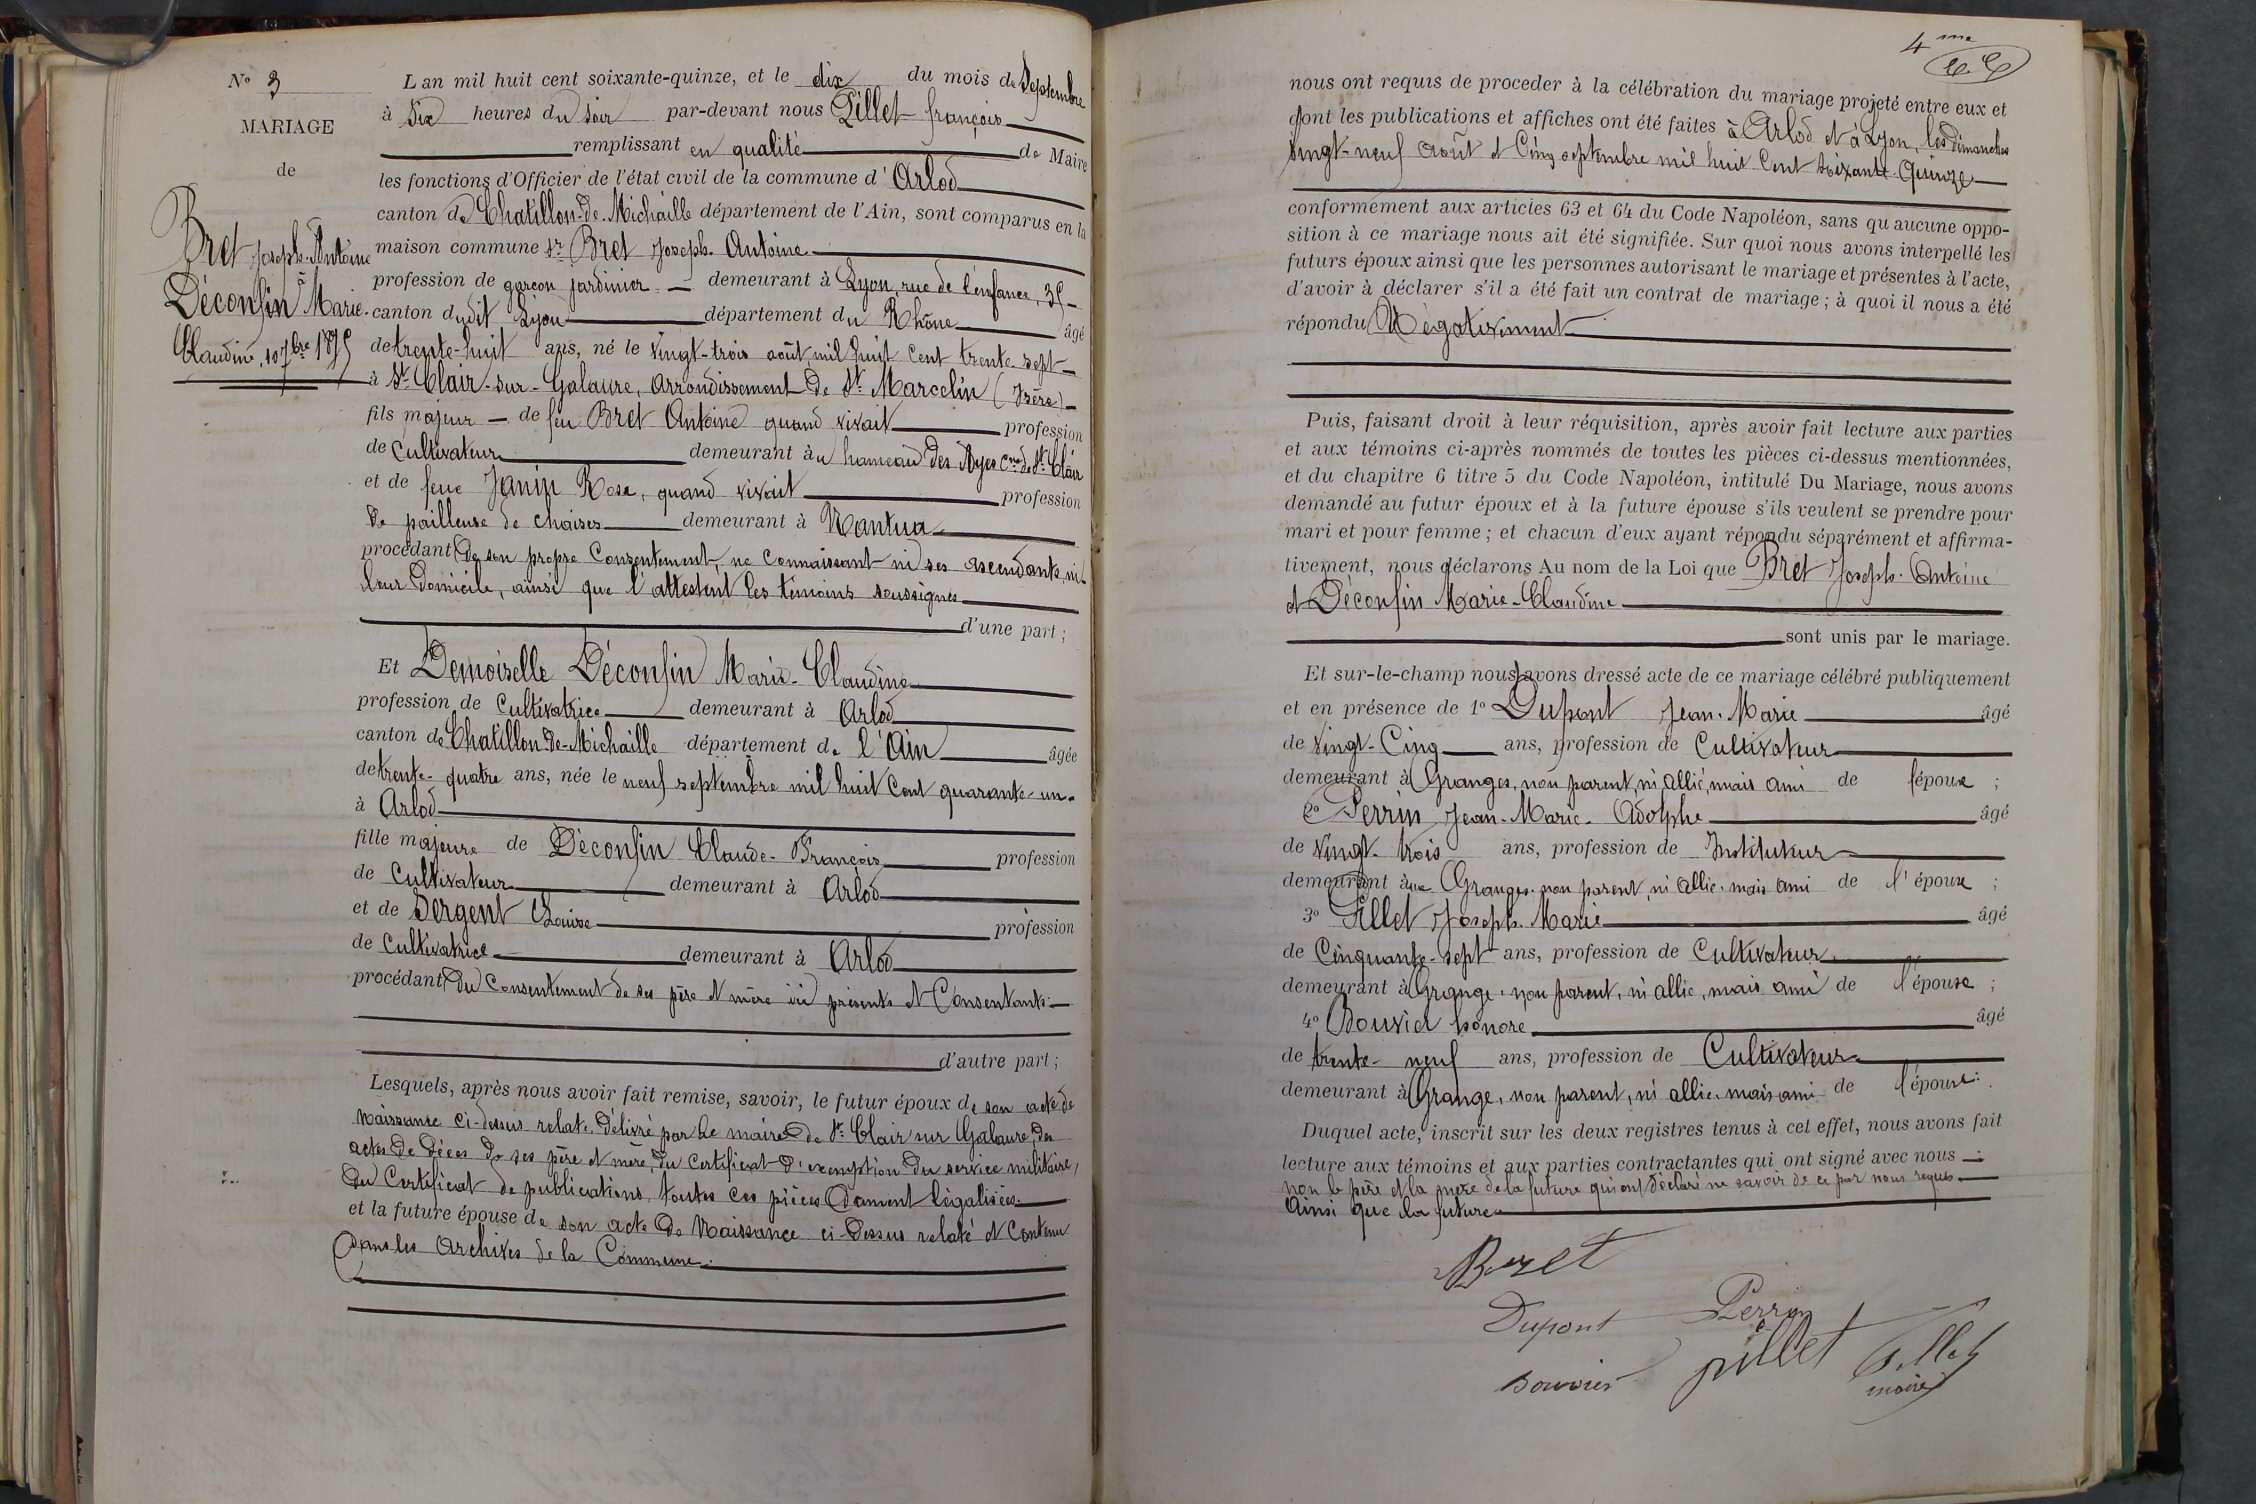 N° 3
MARIAGE
de
Bret Joseph-Antoine
à
Déconfin Marie-
Claudine. 10 7bre 1875
L'an mil huit cent soixante-quinze, et le dix du mois de Septembre
à Six heures du soir par-devant nous Pillet françois
remplissant en qualité de Maire
les fonctions d'Officier de l'état civil de la commune d'Arlod
canton de Chatillon-de-Michaille département de l'Ain, sont comparus en la
maison commune Sr Bret Joseph-Antoine
profession de garçon jardinier demeurant à Lyon, rue de l'enfance, 35
canton dudit Lyon département du Rhône âgé
de trente-huit ans, né le vingt-trois août mil huit cent trente-sept
à St Clair-sur-Galaure, arrondissement de St Marcelin (Isère)
fils majeur de feu Bret Antoine quand vivait profession
de cultivateur demeurant au hameau des Ayes Cne de St Clair
et de feue Janin Rose, quand vivait profession
de pailleuse de chaises demeurant à Nantua
procédant de son propre consentement, ne connaissant ni ses ascendants, ni
leur domicile, ainsi que l'attestent les témoins soussignés
d'une part ;
Et Demoiselle Déconfin Marie-Claudine
profession de cultivatrice demeurant à Arlod
canton de Chatillon-de-Michaille département de l'Ain âgée
de trente-quatre ans, née le neuf septembre mil huit cent quarante-un
à Arlod
fille majeure de Déconfin Claude-François profession
de cultivateur demeurant à Arlod
et de Sergent Louise profession
de cultivatrice demeurant à Arlod
procédant du consentement de ses père et mère ici présents et consentants
d'autre part ;
Lesquels, après nous avoir fait remise, savoir, le futur époux de son acte de
naissance ci-dessus relaté, délivré par le maire de St Clair sur Galaure, des
actes de décès de ses père et mère, du certificat d'exemption du service militaire,
du certificat de publications, toutes ces pièces dument légalisées.
et la future épouse de son acte de naissance ci-dessus relaté et contenu
dans les archives de la Commune.
4me
nous ont requis de proceder à la célébration du mariage projeté entre eux et
dont les publications et affiches ont été faites à Arlod et à Lyon, les dimanches
vingt-neuf août et cinq septembre mil huit cent soixante-quinze
conformément aux articles 63 et 64 du Code Napoléon, sans qu'aucune oppo-
sition à ce mariage nous ait été signifiée. Sur quoi nous avons interpellé les
futurs époux ainsi que les personnes autorisant le mariage et présentes à l'acte,
d'avoir à déclarer s'il a été fait un contrat de mariage ; à quoi il nous a été
répondu Négativement
Puis, faisant droit à leur réquisition, après avoir fait lecture aux parties
et aux témoins ci-après nommés de toutes les pièces ci-dessus mentionnées,
et du chapitre 6 titre 5 du Code Napoléon, intitulé Du Mariage, nous avons
demandé au futur époux et à la future épouse s'ils veulent se prendre pour
mari et pour femme ; et chacun d'eux ayant répondu séparément et affirma-
tivement, nous déclarons Au nom de la Loi que Bret Joseph-Antoine
et Déconfin Marie-Claudine
sont unis par le mariage.
Et sur-le-champ nous avons dressé acte de ce mariage célébré publiquement
et en présence de 1° Dupont Jean-Marie âgé
de vingt-cinq ans, profession de cultivateur
demeurant à Granges, non parent, ni allié, mais ami de l'époux ;
2° Perrin Jean-Marie-Adolphe âgé
de vingt-trois ans, profession de Instituteur
demeurant aux Granges, non parent, ni allié, mais ami de l'époux ;
3° Pillet Joseph-Marie âgé
de cinquante-sept ans, profession de cultivateur
demeurant à Grange, non parent, ni allié, mais ami de l'épouse ;
4° Bouvier honoré âgé
de trente-neuf ans, profession de Cultivateur
demeurant à Grange, non parent, ni allié, mais ami de l'épouse.
Duquel acte, inscrit sur les deux registres tenus à cet effet, nous avons fait
lecture aux témoins et aux parties contractantes qui ont signé avec nous
non le père et la mère de la future qui ont déclaré ne savoir de ce par nous requis.
Ainsi que la future
Bret
Dupont Perrin
Bouvier pillet Pillet
maire